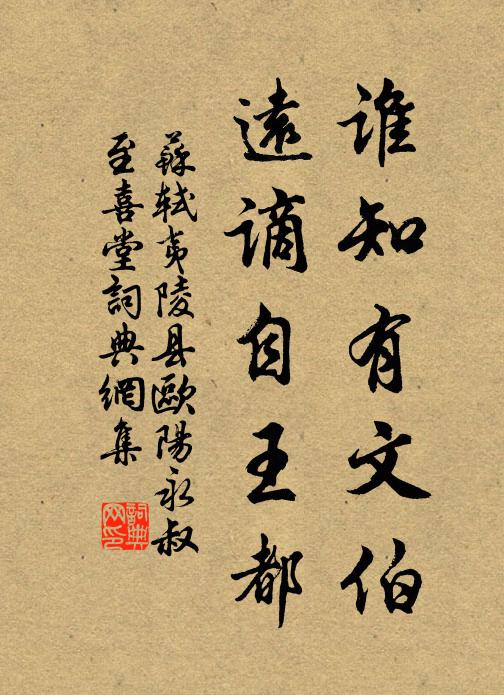 谁知有文伯
遠謫自王都
蘇軾夷陵县歐陽永叔
至喜堂詞典網集
詞典网印